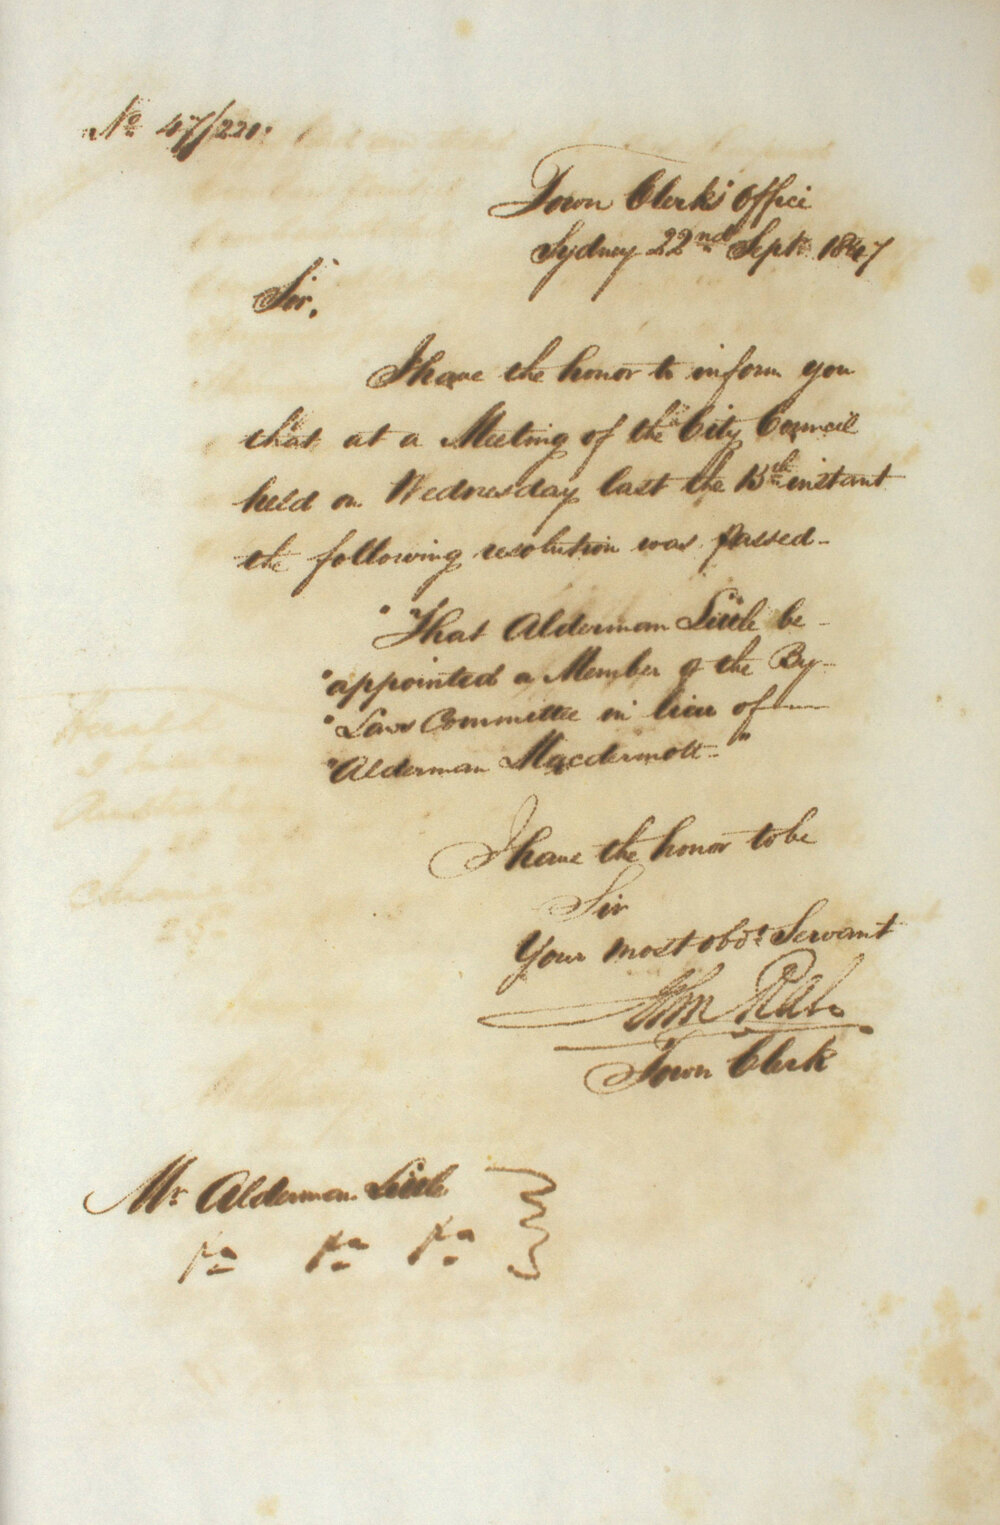 No 47/221.
Town Clerks' Office
Sydney 22nd Sept. 1847
Sir,
I have the honor to inform you
that at a Meeting of the City Council
held on Wednesday last the 15th instant
the following resolution was passed -
"That Alderman Little be -
"appointed a Member of the By-
"Laws Committee in lieu of —
"Alderman Macdermott - "
I have the honor to be
Sir
Your most obdt Servant
Town Clerk
Mr Alderman Little